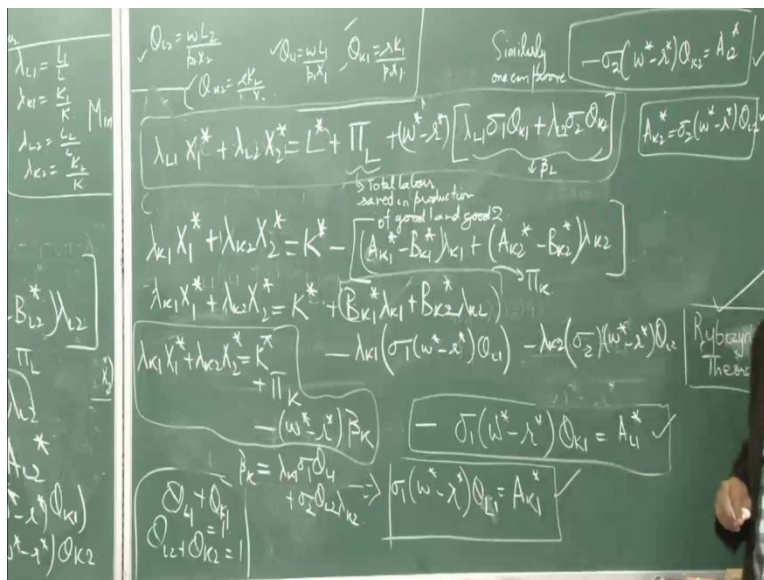 λL1 = L1/L
λK1 = K1/K
λL2 = L2/L
λK2 = K2/K
Min
-BL2*) λL2]
ΠL
AL2*
*-r*) θK1)
*-r*) θK2
✓ θL2 = wL2/p2x2
✓ θL1 = wL1/p1x1
✓ θK1 = rK1/p1x1
✓ θK2 =
Similarly
one can prove
-σ2(w*-r*)θK2 = AL2* ✓
AK2* = σ2(w*-r*)θL2 ✓
λL1 X1* + λL2 X2* = L* + ΠL + (w*-r*) [λL1 σ1 θK1 + λL2 σ2 θK2]
↓ βL
↳ Total labour
saved in production
of good 1 and good 2
λK1 X1* + λK2 X2* = K* - [(AK1* - BK1*) λK1 + (AK2* - BK2*) λK2]
→ ΠK
λK1 X1* + λK2 X2* = K* + (BK1* λK1 + BK2* λK2)
- λK1 (σ1 (w*-r*) θL1) - λK2 (σ2) (w*-r*) θL2
λK1 X1* + λK2 X2* = K*
+ ΠK
- (w*-r*) βK
βK = λK1 σ1 θL1
+ σ2 θL2 λK2
- σ1 (w*-r*) θK1 = AL1* ✓
⇒ σ1 (w*-r*) θL1 = AK1* ✓
θL1 + θK1
= 1
θL2 + θK2 = 1